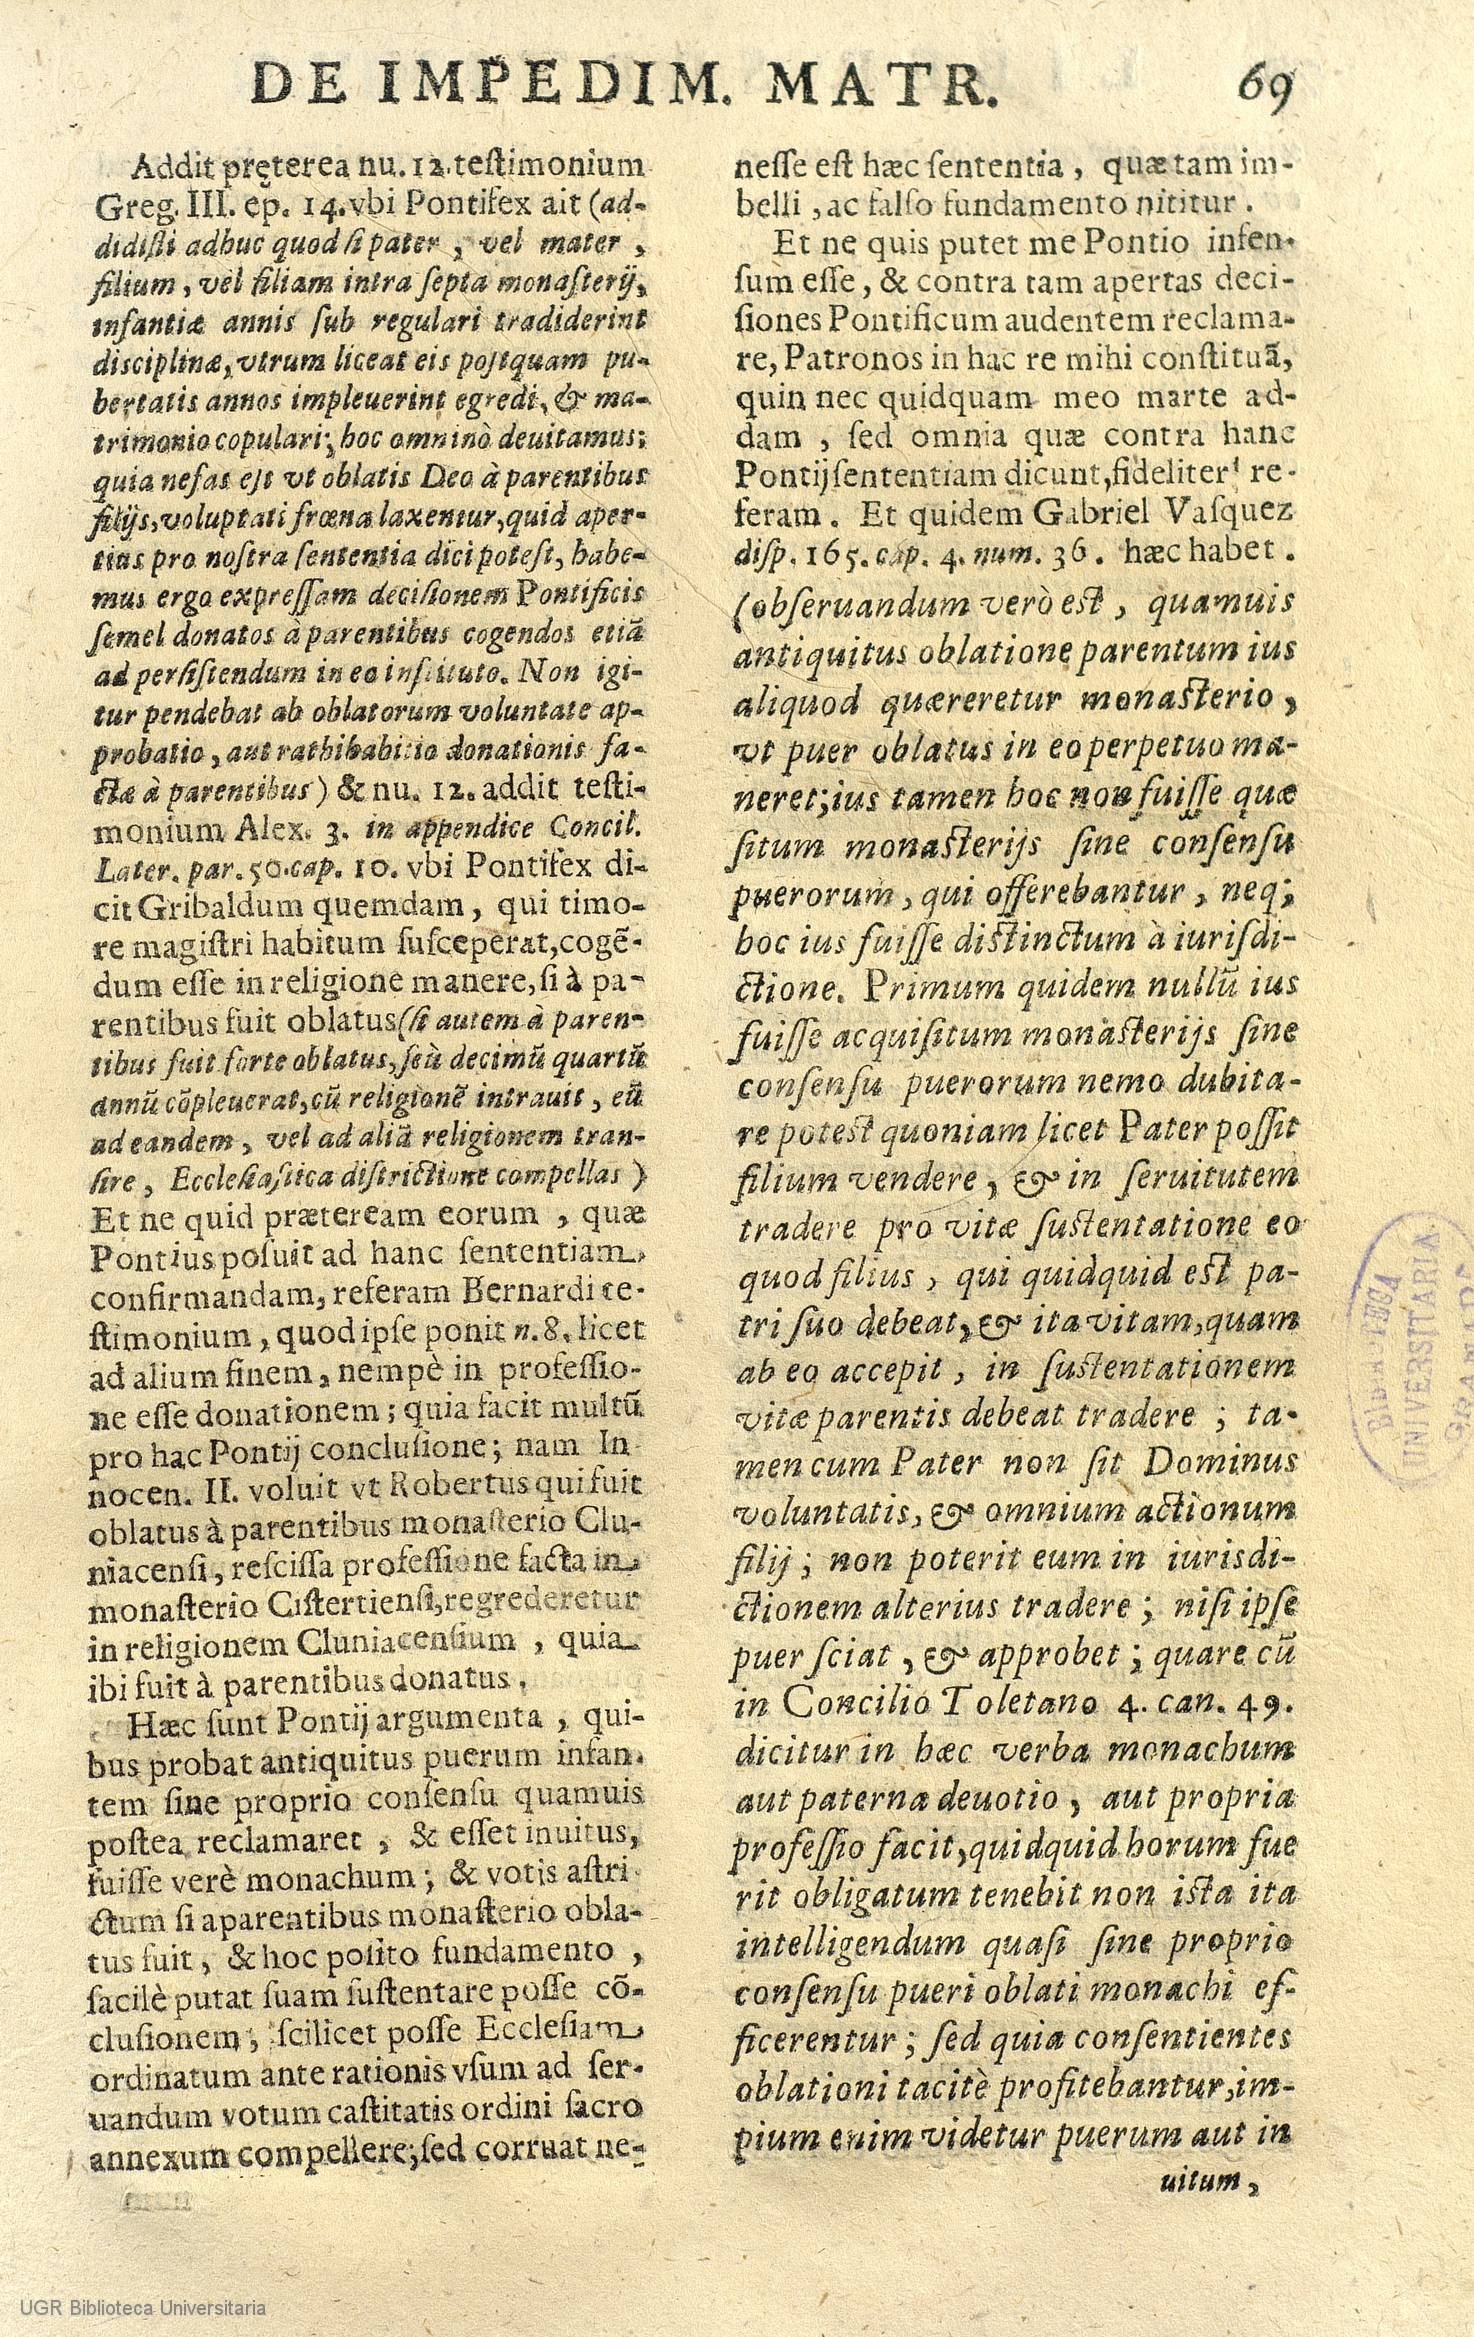 DE IMPEDIM. MATR. 69
Addit pręterea nu. 12. testimonium
Greg. III. ep. 14. vbi Pontifex ait (ad-
didisti adhuc quod si pater, vel mater,
filium, vel filiam intra septa monasterij,
infantiæ annis sub regulari tradiderint
disciplinæ, vtrum liceat eis postquam pu-
bertatis annos impleuerint egredi, & ma-
trimonio copulari; hoc omninò deuitamus;
quia nefas est vt oblatis Deo à parentibus
filijs, voluptati frœna laxentur, quid aper-
tius pro nostra sententia dici potest, habe-
mus ergo expressam decisionem Pontificis
semel donatos à parentibus cogendos etiã
ad persistendum in eo instituto. Non igi-
tur pendebat ab oblatorum voluntate ap-
probatio, aut rathihabitio donationis fa-
ctæ à parentibus) & nu. 12. addit testi-
monium Alex. 3. in appendice Concil.
Later. par. 50. cap. 10. vbi Pontifex di-
cit Gribaldum quemdam, qui timo-
re magistri habitum susceperat, cogẽ-
dum esse in religione manere, si à pa-
rentibus fuit oblatus (si autem à paren-
tibus fuit forte oblatus, seù decimũ quartũ
annũ cõpleuerat, cũ religionẽ intrauit, eũ
ad eandem, vel ad aliã religionem tran-
sire, Ecclesiastica districtione compellas)
Et ne quid præteream eorum, quæ
Pontius posuit ad hanc sententiam,
confirmandam, referam Bernardi te-
stimonium, quod ipse ponit n. 8. licet
ad alium finem, nempè in professio-
ne esse donationem; quia facit multũ
pro hac Pontij conclusione; nam In
nocen. II. voluit vt Robertus qui fuit
oblatus à parentibus monasterio Clu-
niacensi, rescissa professione facta in
monasterio Cistertiensi, regrederetur
in religionem Cluniacensium, quia
ibi fuit à parentibus donatus.
Hæc sunt Pontij argumenta, qui-
bus probat antiquitus puerum infan-
tem sine proprio consensu quamuis
postea reclamaret, & esset inuitus,
fuisse verè monachum; & votis astri
ctum si aparentibus monasterio obla-
tus fuit, & hoc posito fundamento,
facilè putat suam sustentare posse cõ-
clusionem, scilicet posse Ecclesiam
ordinatum ante rationis vsum ad ser-
uandum votum castitatis ordini sacro
annexum compellere; sed corruat ne-
nesse est hæc sententia, quæ tam im-
belli, ac falso fundamento nititur.
Et ne quis putet me Pontio infen-
sum esse, & contra tam apertas deci-
siones Pontificum audentem reclama-
re, Patronos in hac re mihi constituã,
quin nec quidquam meo marte ad-
dam, sed omnia quæ contra hanc
Pontij sententiam dicunt, fideliter re-
feram. Et quidem Gabriel Vasquez
disp. 165. cap. 4. num. 36. hæc habet.
(obseruandum verò est, quamuis
antiquitus oblatione parentum ius
aliquod quæreretur monasterio,
vt puer oblatus in eo perpetuo ma-
neret; ius tamen hoc non fuisse quæ
situm monasterijs sine consensu
puerorum, qui offerebantur, neq;
hoc ius fuisse distinctum à iurisdi-
ctione. Primum quidem nullũ ius
fuisse acquisitum monasterijs sine
consensu puerorum nemo dubita-
re potest quoniam licet Pater possit
filium vendere, & in seruitutem
tradere pro vitæ sustentatione eo
quod filius, qui quidquid est pa-
tri suo debeat, & ita vitam, quam
ab eo accepit, in sustentationem
vitæ parentis debeat tradere; ta-
men cum Pater non sit Dominus
voluntatis, & omnium actionum
filij; non poterit eum in iurisdi-
ctionem alterius tradere; nisi ipse
puer sciat, & approbet; quare cũ
in Concilio Toletano 4. can. 49.
dicitur in hæc verba monachum
aut paterna deuotio, aut propria
professio facit, quidquid horum fue
rit obligatum tenebit non ista ita
intelligendum quasi sine proprio
consensu pueri oblati monachi ef-
ficerentur; sed quia consentientes
oblationi tacitè profitebantur, im-
pium enim videtur puerum aut in
uitum,
BIBLIOTECA
UNIVERSITARIA
GRANADA
UGR Biblioteca Universitaria